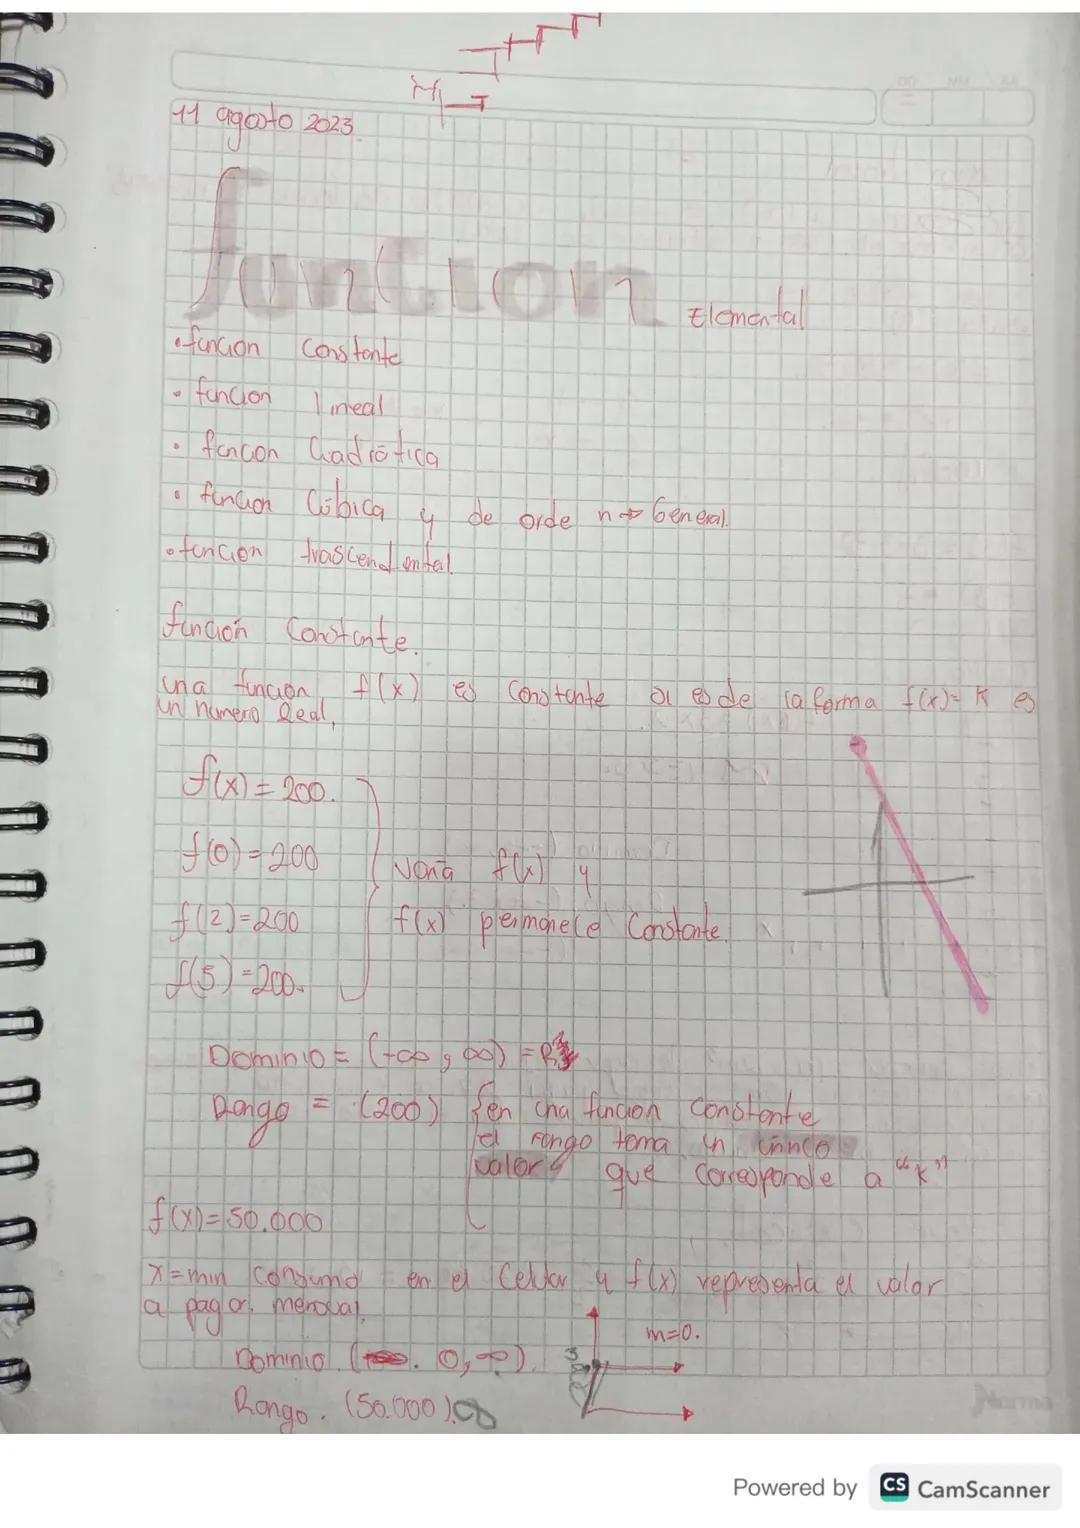 11 agosto 2023.
función
Elemental
• funcion Constante
• funcion lineal
• funcion Cuadrática
• funcion Cúbica y de orde n → General.
• funcion trascendental.
función Constante.
una funcion f(x) es constante si es de la forma f(x)= K es
un numero Real,
f(x) = 200.
f(0) = 200
varia f(x) y
f(2)=200
f(x) permanece Constante.
f(5)=200.
Dominio = (-∞, ∞) = R
Rango = (200) { en una funcion constante
el rango toma un único
valor que corresponde a "k"
f(x)=50.000
x=min consumo en el Celular y f(x) representa el valor
a pagar mensual,
m=0.
Dominio (0, ∞)
Rango. (50.000)
Norma
Powered by CS CamScanner